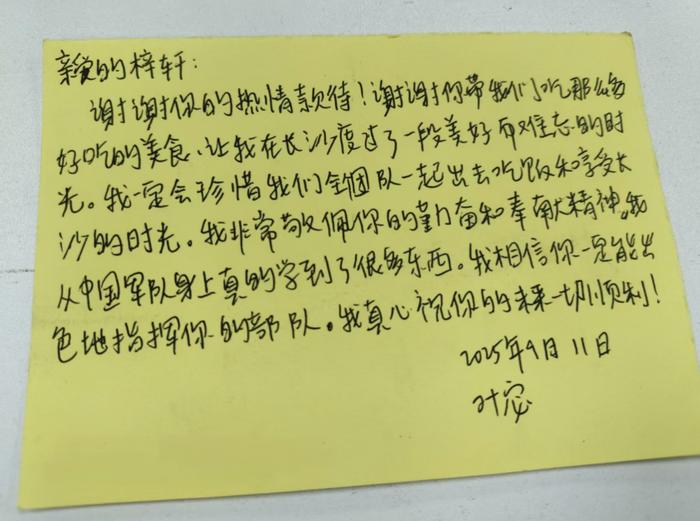 亲爱的梓轩：
谢谢你的热情款待！谢谢你带我们吃那么多
好吃的美食、让我在长沙度过了一段美好而难忘的时
光。我一定会珍惜我们全团队一起出去吃饭和享受长
沙的时光。我非常敬佩你的勤奋和奉献精神。我
从中国军队身上真的学到了很多东西。我相信你一定能出
色地指挥你的部队。我真心祝你的未来一切顺利！
2025年9月11日
叶宓